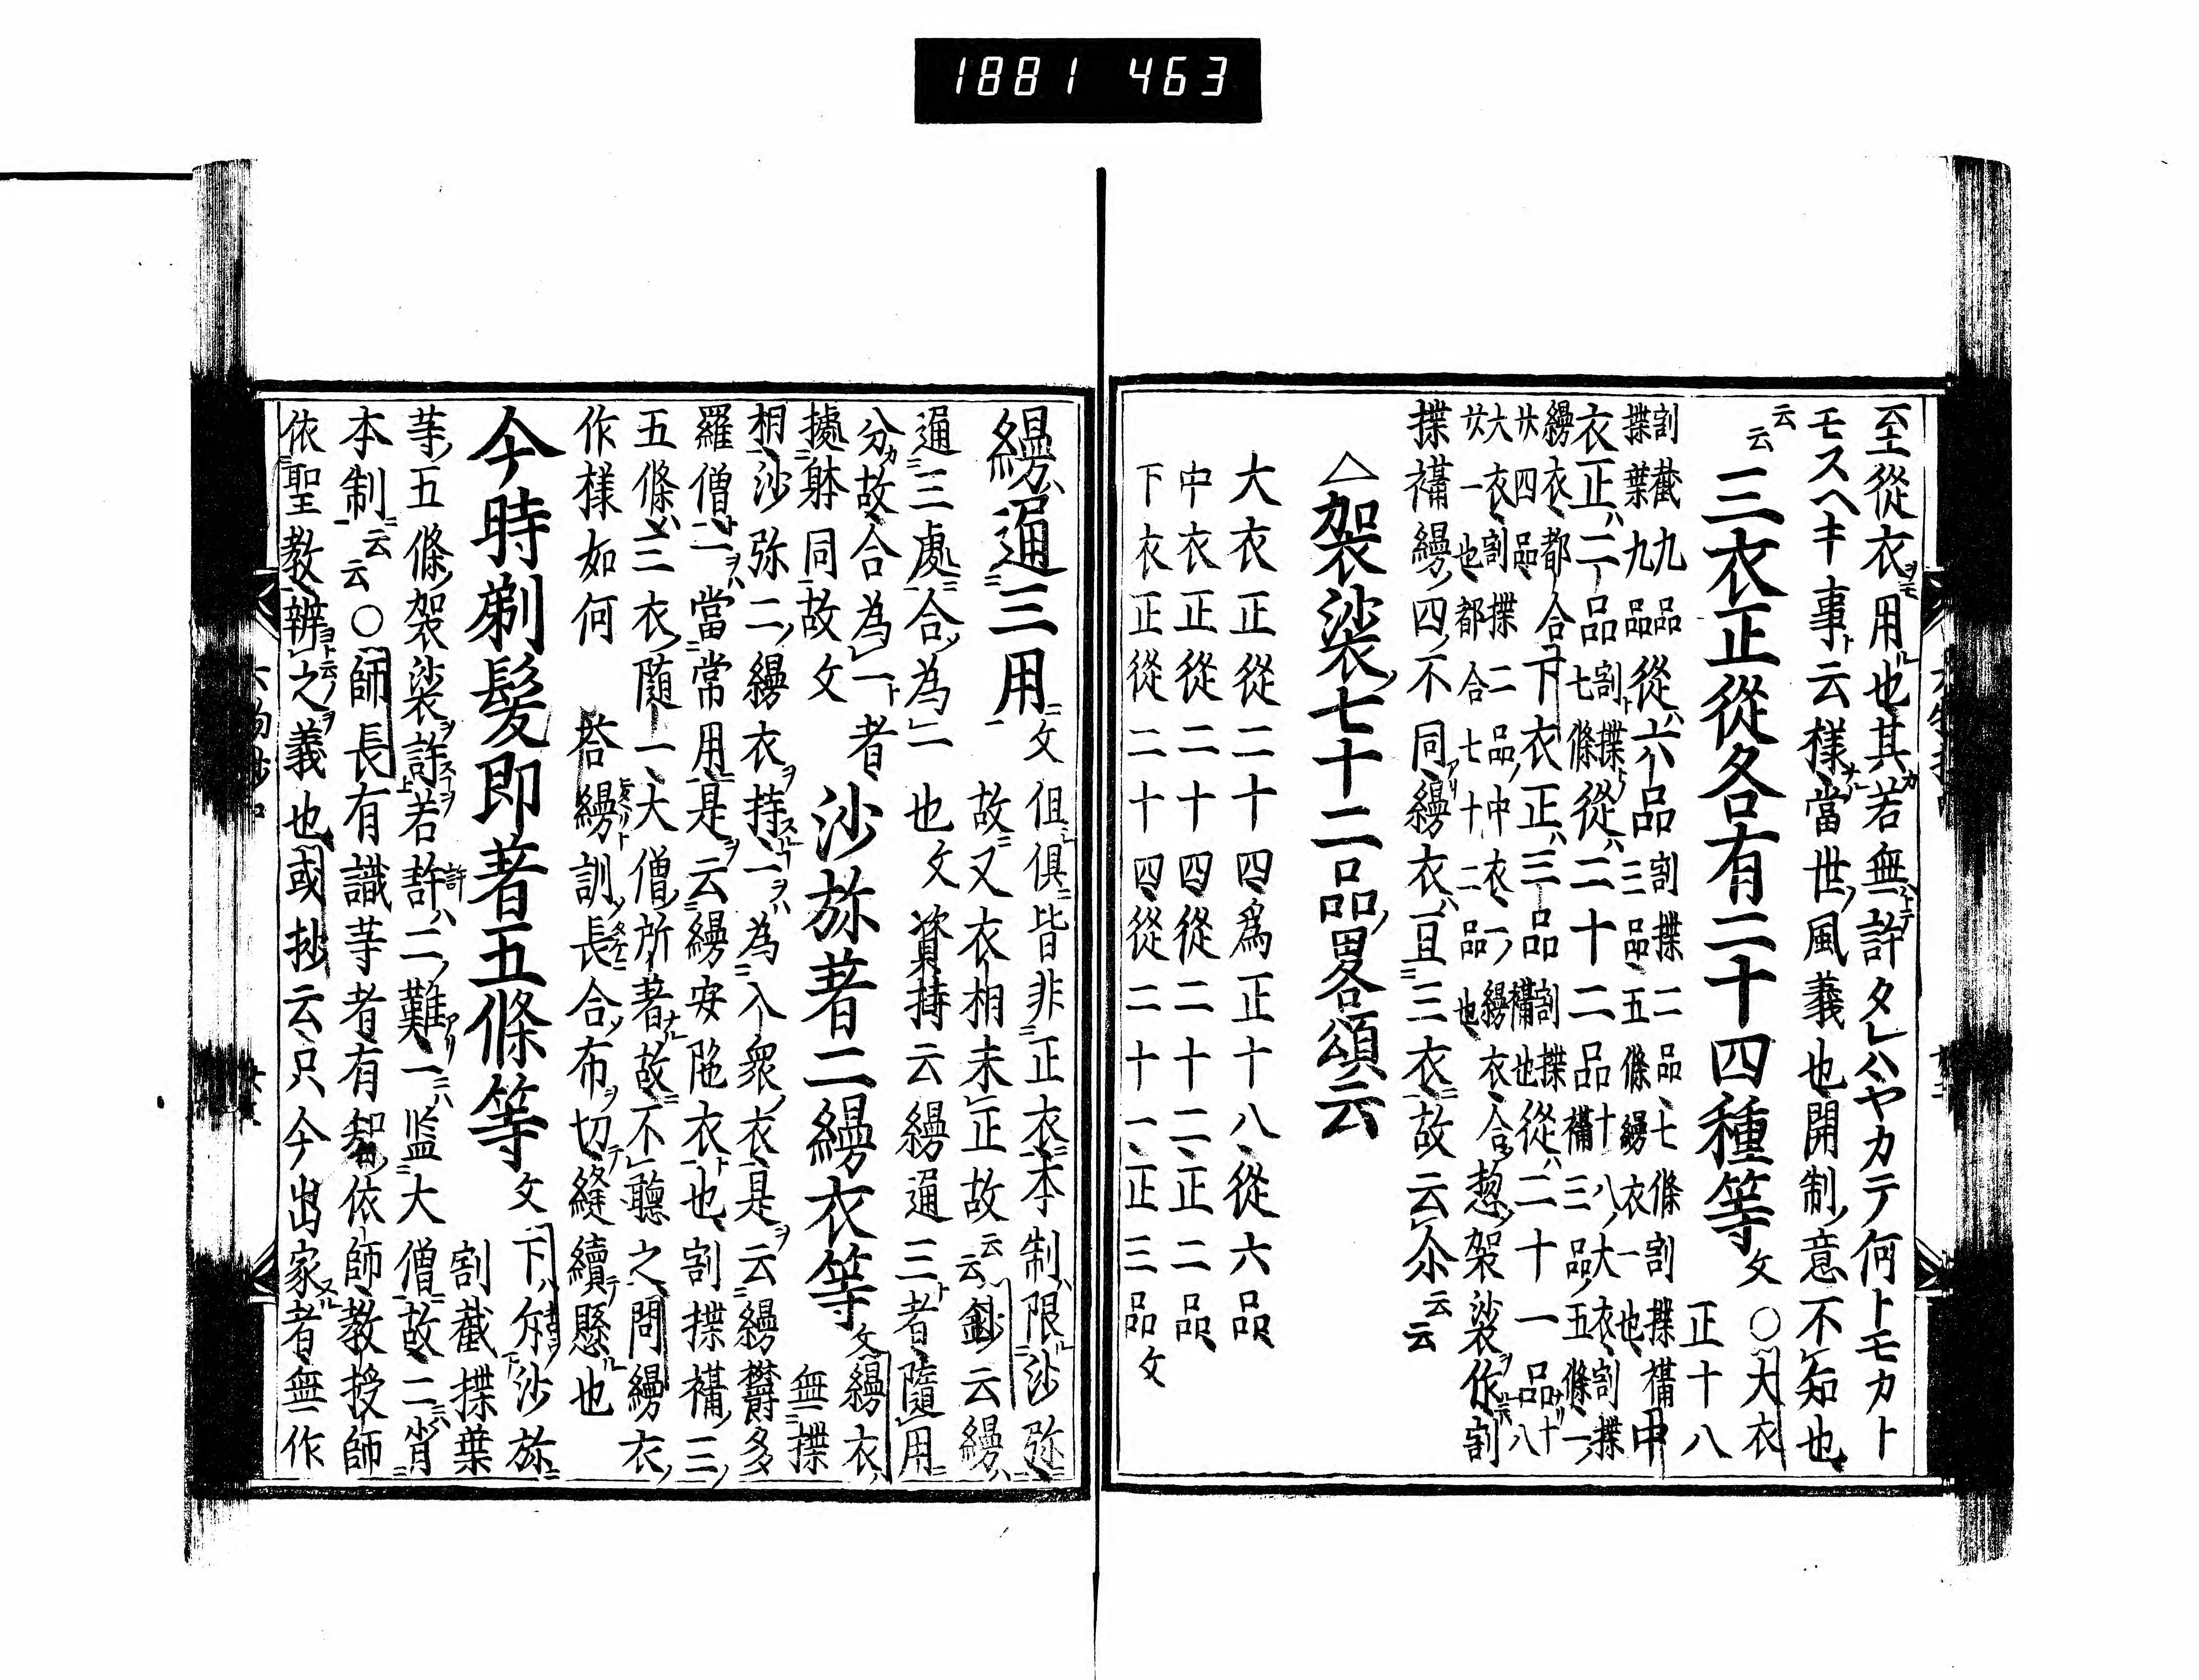 1881 463
至從衣用也其若無許タレハヤカテ何トモカト
モスヘキ事云樣當世風義也開制意不知也
云云 三衣正從各有二十四種等文 〇大衣正十八
割截九品
揲葉九品
從六品
割揲二品七條割揲襵中
三品五條縵衣一也
衣正二品
割揲
七條
從二十二品
十八大衣割揲
襵三品五條一
縵衣都合下衣正三品
割揲
襵也
從二十一品
十八
廿四品
大衣割揲二品中衣一縵衣合
廿一也都合七十二品也
惣袈裟作割
揲襵縵四不同縵衣亘三衣故云尒云云
△袈裟七十二品畧頌云
大衣正從二十四爲正十八從六品
中衣正從二十四從二十二正二品
下衣正從二十四從二十一正三品文
縵通三用文 但俱皆非正衣本制限沙弥
故又衣相未正故云云鈔云縵
通三處合為一也文 資持云縵通三者隨用
分故合為一者 沙旀著二縵衣等文縵衣
無揲
據躰同故文
相沙弥二縵衣持一為入衆衣是云縵欝多
羅僧一當常用是云縵安陁衣也割揲襵三
五條三衣隨一大僧所著故不聽之問縵衣
作樣如何 荅縵訓長合布切縫續懸也
今時剃髪即著五條等文 下尒沙旀
割截揲葉
等五條袈裟許若許二難一濫大僧故二背
本制云云〇師長有識等者有智依師教授師
依聖教辨之義也或抄云只今出家者無作